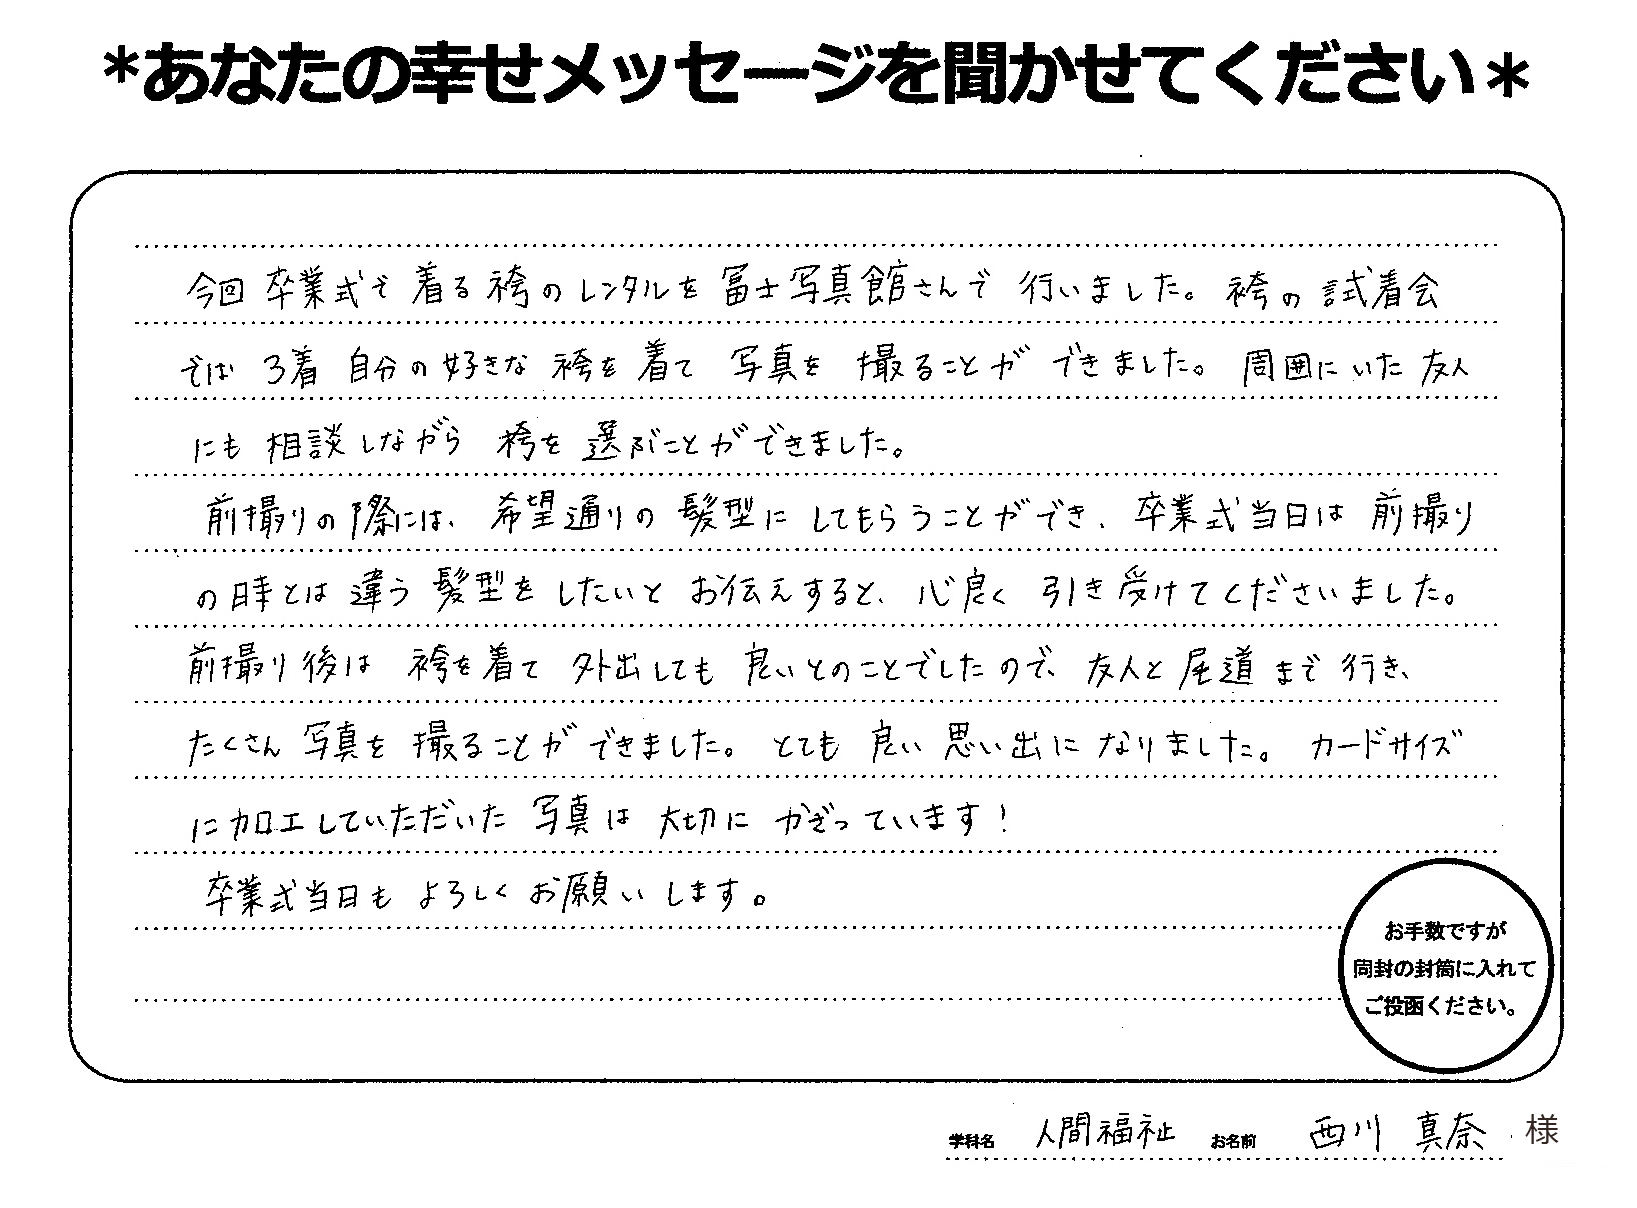 *あなたの幸せメッセージを聞かせてください*
今回 卒業式で 着る 袴のレンタルを 冨士写真館さんで 行いました。 袴の 試着会
では 3着 自分の 好きな 袴を 着て 写真を 撮ることが できました。 周囲にいた 友人
にも 相談しながら 袴を 選ぶことができました。
前撮りの際には、希望通りの 髪型に してもらうことができ、卒業式当日は 前撮り
の時とは 違う 髪型を したいと お伝えすると、心良く 引き受けてくださいました。
前撮り後は 袴を着て 外出しても 良いとのことでしたので、友人と 尾道まで 行き、
たくさん 写真を 撮ることができました。とても 良い 思い出に なりました。 カードサイズ
に加工していただいた 写真は 大切に かざっています!
卒業式当日も よろしくお願いします。
お手数ですが
同封の封筒に入れて
ご投函ください。
学科名 人間福祉 お名前 西川 真奈 様